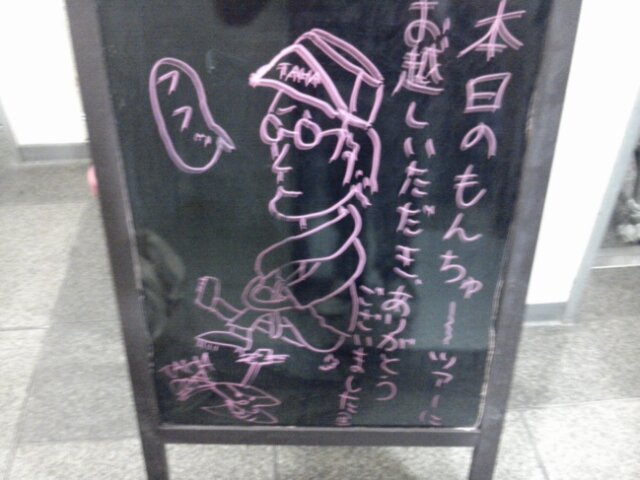 本日のもんちゅ〜ツアーに
お越しいただき、
ありがとう
ございました
フフ…
TAHA